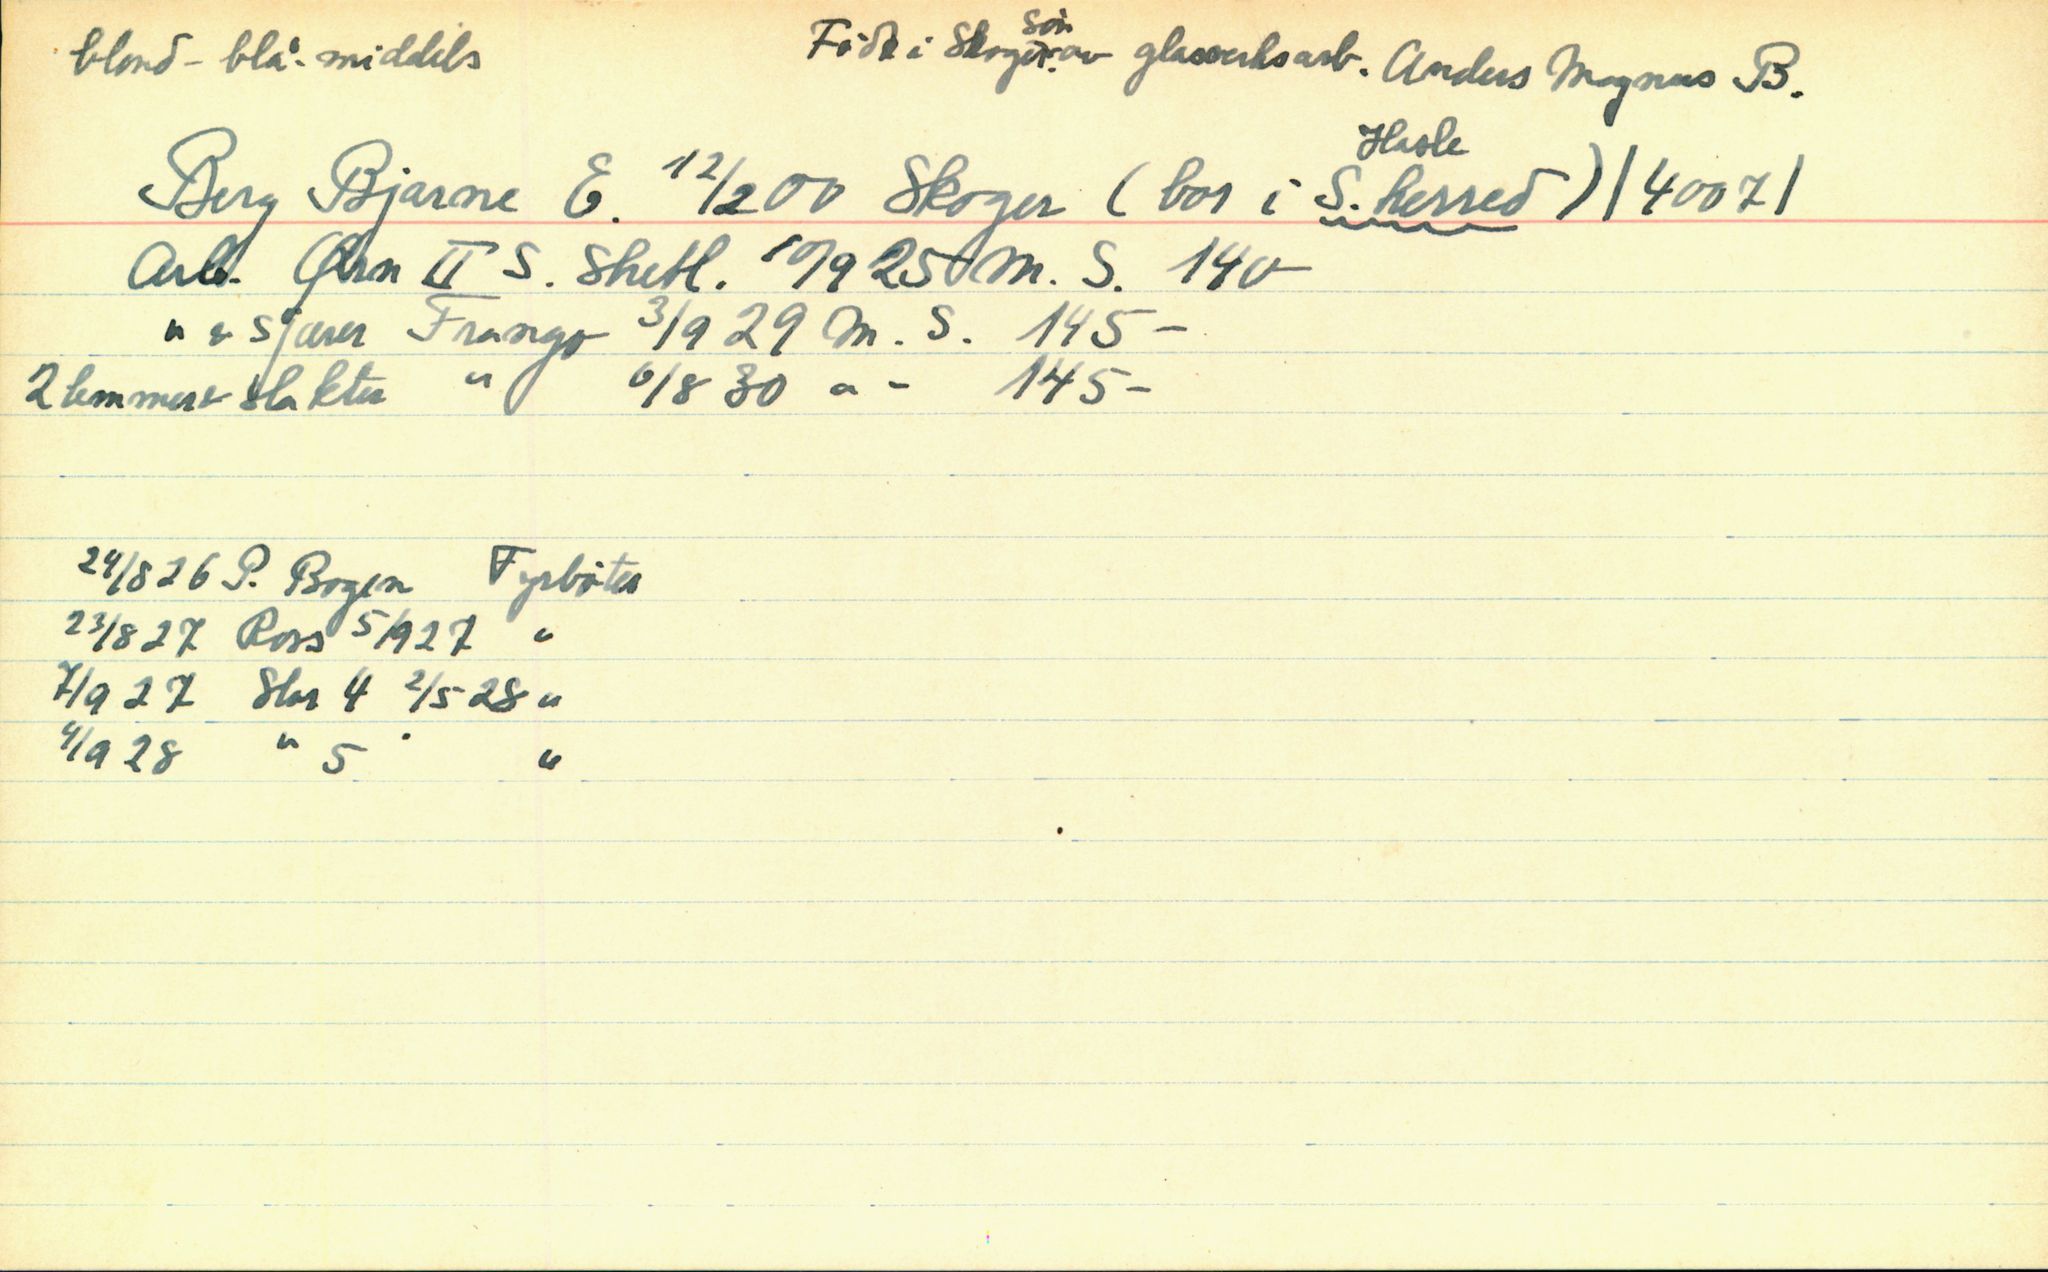 blond - blå - middels
Född i Skoger. søn av glassverksarb. Anders Magnus B.
Hasle
Berg Bjarne E. 12/2 00 Skoger (bor i S. herred) | 40071
Arb. Ørn II S. Shetl. 10/9 25 M. S. 140-
" & Sjauer Frango 3/9 29 M. S. 145-
2 lemmer & slakter " 6/8 30 " - 145-
24/8 26 P. Bogen Fyrbøter
23/8 27 Ross 5/9 27 "
7/9 27 Star 4 2/5-28 "
4/9 28 " 5 "